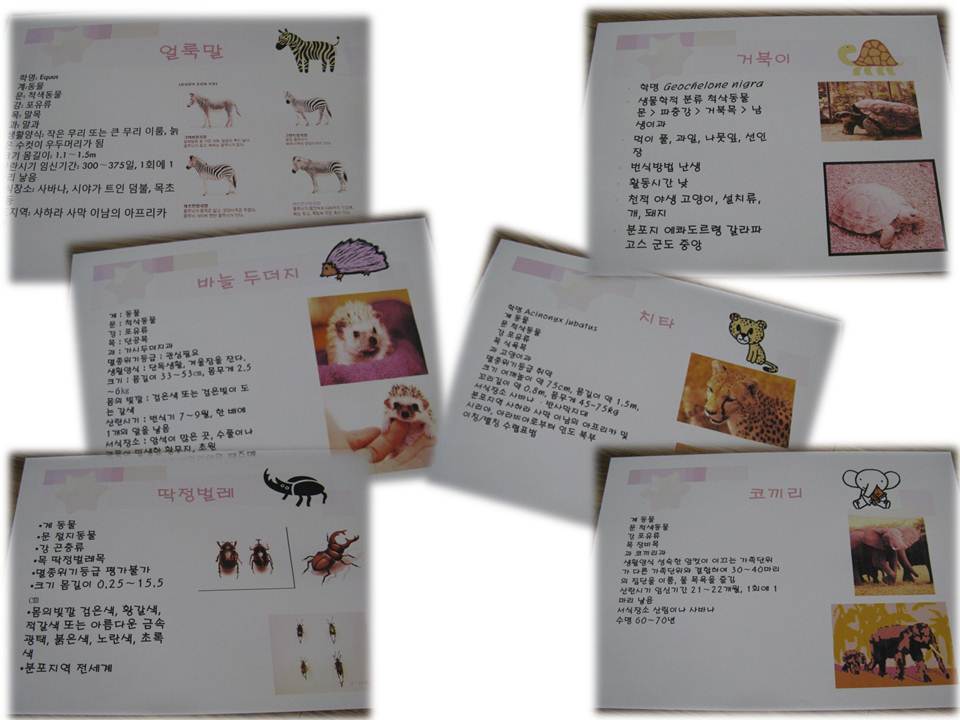 얼룩말
학명: Equus
계:동물
문: 척색동물
강: 포유류
목: 말목
과: 말과
생활양식: 작은 무리 또는 큰 무리 이룸, 늙
은 수컷이 우두머리가 됨
크기 몸길이: 1.1~1.5m
산란시기 임신기간: 300~375일, 1회에 1
마리 낳음
서식장소: 사바나, 시야가 트인 덤불, 목초
지역: 사하라 사막 이남의 아프리카
거북이
학명 Geochelone nigra
생물학적 분류 척삭동물
문 > 파충강 > 거북목 > 남
생이과
먹이 풀, 과일, 나뭇잎, 선인
장
번식방법 난생
활동시간 낮
천적 야생 고양이, 설치류,
개, 돼지
분포지 에콰도르령 갈라파
고스 군도 중앙
바늘 두더지
계 : 동물
문 : 척삭동물
강 : 포유류
목 : 단공목
과 : 가시두더지과
멸종위기등급 : 관심필요
생활양식 : 단독생활, 겨울잠을 잔다.
크기 : 몸길이 33~53cm, 몸무게 2.5
~6kg
몸의 빛깔 : 검은색 또는 검은빛이 도
는 갈색
산란시기 : 번식기 7~9월, 한 배에
1개의 알을 낳음
서식장소 : 암석이 많은 곳, 수풀이나
황무지, 초원
치타
학명 Acinonyx jubatus
계 동물
문 척삭동물
강 포유류
목 식육목
과 고양이과
멸종위기등급 취약
크기 어깨높이 약 75cm, 몸길이 약 1.5m,
꼬리길이 약 0.8m, 몸무게 45~75kg
서식장소 사바나 · 반사막지대
분포지역 사하라 사막 이남의 아프리카 및
시리아, 아라비아로부터 인도 북부
이칭/별칭 수렵표범
딱정벌레
•계 동물
•문 절지동물
•강 곤충류
•목 딱정벌레목
•멸종위기등급 평가불가
•크기 몸길이 0.25~15.5
cm
•몸의빛깔 검은색, 황갈색,
적갈색 또는 아름다운 금속
광택, 붉은색, 노란색, 초록
색
•분포지역 전세계
코끼리
계 동물
문 척색동물
강 포유류
목 장비목
과 코끼리과
생활양식 성숙한 암컷이 이끄는 가족단위
가 다른 가족단위와 결합하여 30~40마리
의 집단을 이룸, 물 목욕을 즐김
산란시기 임신기간 21~22개월, 1회에 1
마리 낳음
서식장소 산림이나 사바나
수명 60~70년